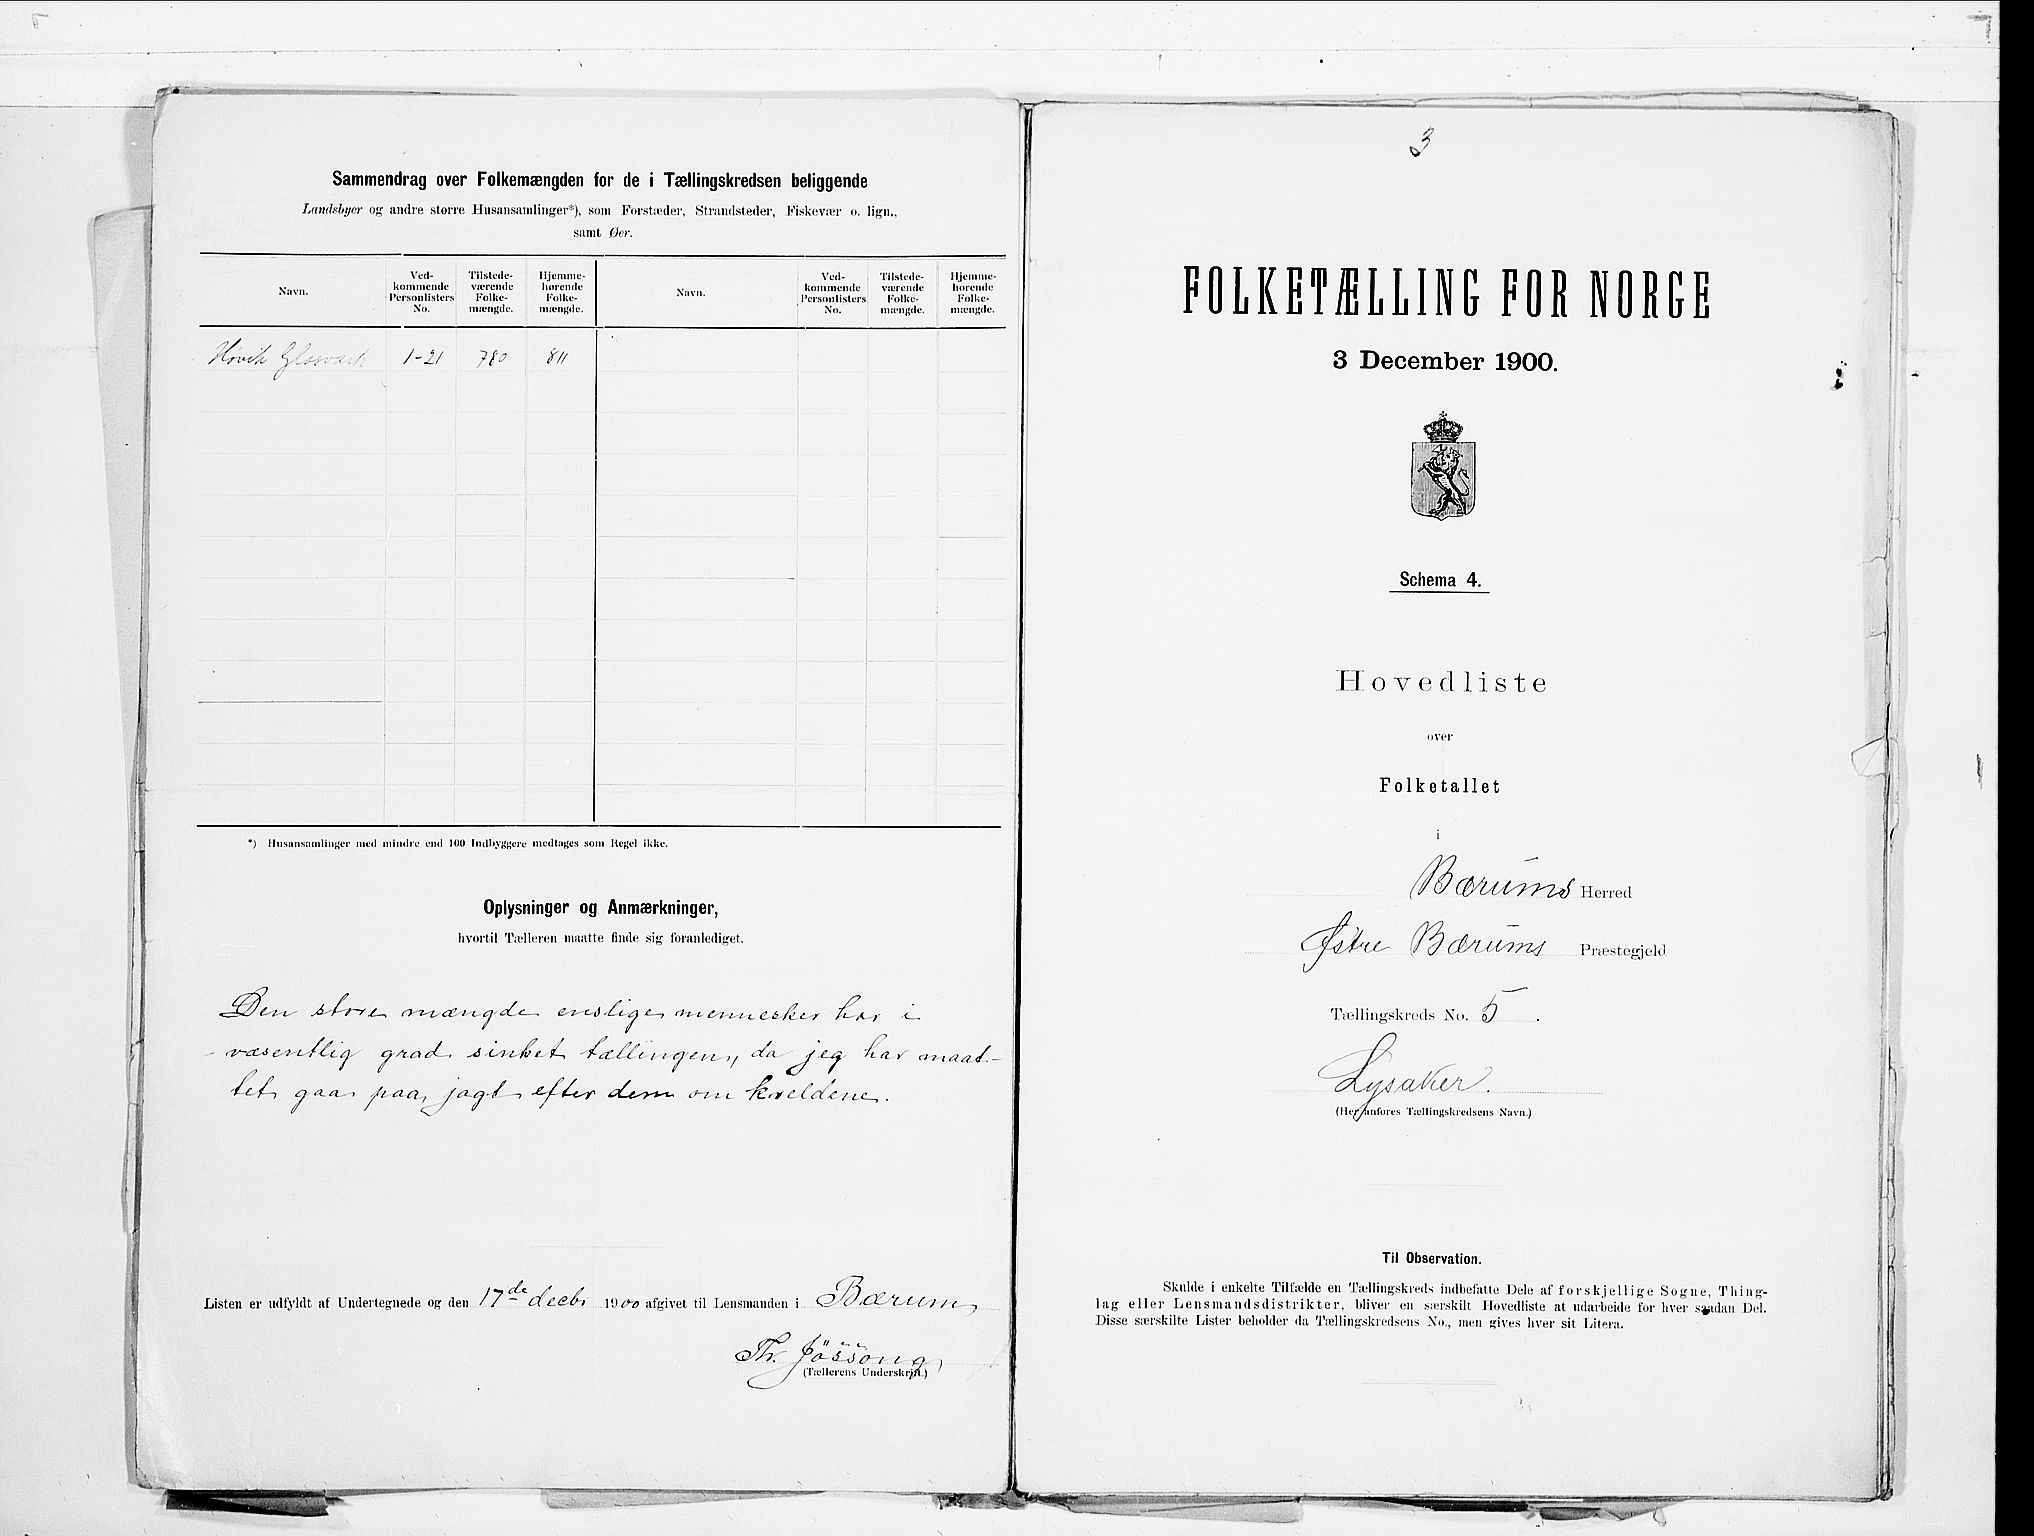 Sammendrag over Folkemængden for de i Tællingskredsen beliggende
Landsbyer og andre større Husansamlinger*), som Forstæder, Strandsteder, Fiskevær o. lign.,
samt Øer.
Navn.
Ved-
kommende
Personlisters
No.
Tilstede-
værende
Folke-
mængde.
Hjemme-
hørende
Folke-
mængde.
Navn.
Ved-
kommende
Personlisters
No.
Tilstede-
værende
Folke-
mængde.
Hjemme-
hørende
Folke-
mængde.
Høvik Glasværk 1-21 780 811
*) Husansamlinger med mindre end 100 Indbyggere medtages som Regel ikke.
Oplysninger og Anmærkninger,
hvortil Tælleren maatte finde sig foranlediget.
Den store mængde enslige mennesker har i
væsentlig grad sinket tællingen, da jeg har maat-
tet gaa paa jagt efter dem om kveldene.
Listen er udfyldt af Undertegnede og den 17de decbr 1900 afgivet til Lensmanden i Bærum
Th. Jössong
(Tællerens Underskrift.)
3
FOLKETÆLLING FOR NORGE
3 December 1900.
Schema 4.
Hovedliste
over
Folketallet
i
Bærums Herred
Østre Bærums Præstegjeld
Tællingskreds No. 5.
Lysaker.
(Her anføres Tællingskredsens Navn.)
Til Observation.
Skulde i enkelte Tilfælde en Tællingskreds indbefatte Dele af forskjellige Sogne, Thing-
lag eller Lensmandsdistrikter, bliver en særskilt Hovedliste at udarbeide for hver saadan Del.
Disse særskilte Lister beholder da Tællingskredsens No., men gives hver sit Litera.